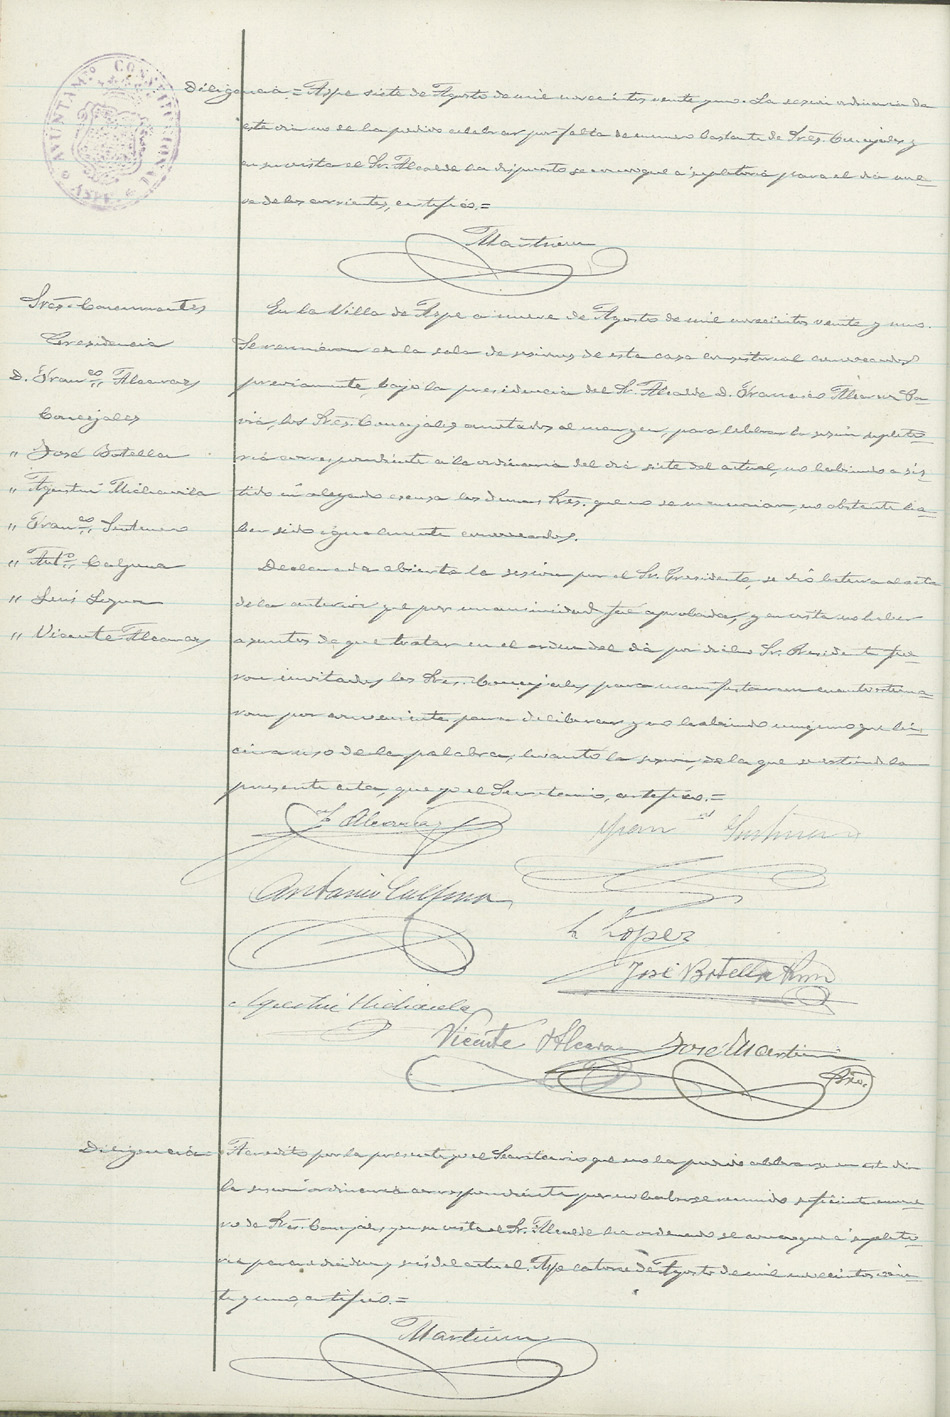 AYUNTAM.º CONSTITUCIONAL
ASPE
Diligencia = Aspe siete de Agosto de mil novecientos veinte y uno. La sesion ordinaria de
este dia no se ha podido celebrar por falta de numero bastante de Sres. Concejales y
en su vista el Sr. Alcalde ha dispuesto se convoque a supletoria para el dia nue-
ve de los corrientes, certifico.=
Martinez
Sres. Concurrentes
Presidencia
D. Franco. Alcaraz
Concejales
" José Botella
" Agustin Miñavila
" Franco.
" Anto. Calpena
" Luis Lopez
" Vicente Alcaraz
En la Villa de Aspe a nueve de Agosto de mil novecientos veinte y uno.
Se reunieron en la sala de sesiones de esta casa consistorial convocados
previamente, bajo la presidencia del Sr. Alcalde D. Francisco Alcaraz
los Sres. Concejales anotados al margen, para celebrar la sesion supleto-
ria correspondiente a la ordinaria del dia siete del actual, no habiendo asis-
tido ni alegado escusa los demas Sres. que no se mencionan, no obstante ha-
ber sido igualmente convocados.
Declarada abierta la sesion por el Sr. Presidente, se dió lectura al acta
de la anterior que por unanimidad fué aprobada, y en vista no haber
asuntos de que tratar en el orden del dia por dicho Sr. Presidente fue-
ron invitados los Sres. Concejales para manifestaran cuanto estima-
ran por conveniente para deliberar y no habiendo ninguno que hi-
ciera uso de la palabra, levanto la sesion, de la que se estiende la
presente acta, que yo el Secretario, certifico.=
Fco Alcaraz
Antonio Calpena
L Lopez
José Botella
Agustin Miñavila
Vicente Alcaraz
José Martinez
Srio.
Diligencia = Acredito por la presente yo el Secretario que no ha podido celebrarse en este dia
la sesion ordinaria correspondiente por no haberse reunido suficiente nume-
ro de Sres. Concejales y en su vista el Sr. Alcalde ha ordenado se convoque a supleto-
ria para el dia diez y seis del actual. Aspe catorce de Agosto de mil novecientos vein-
te y uno, certifico.=
Martinez